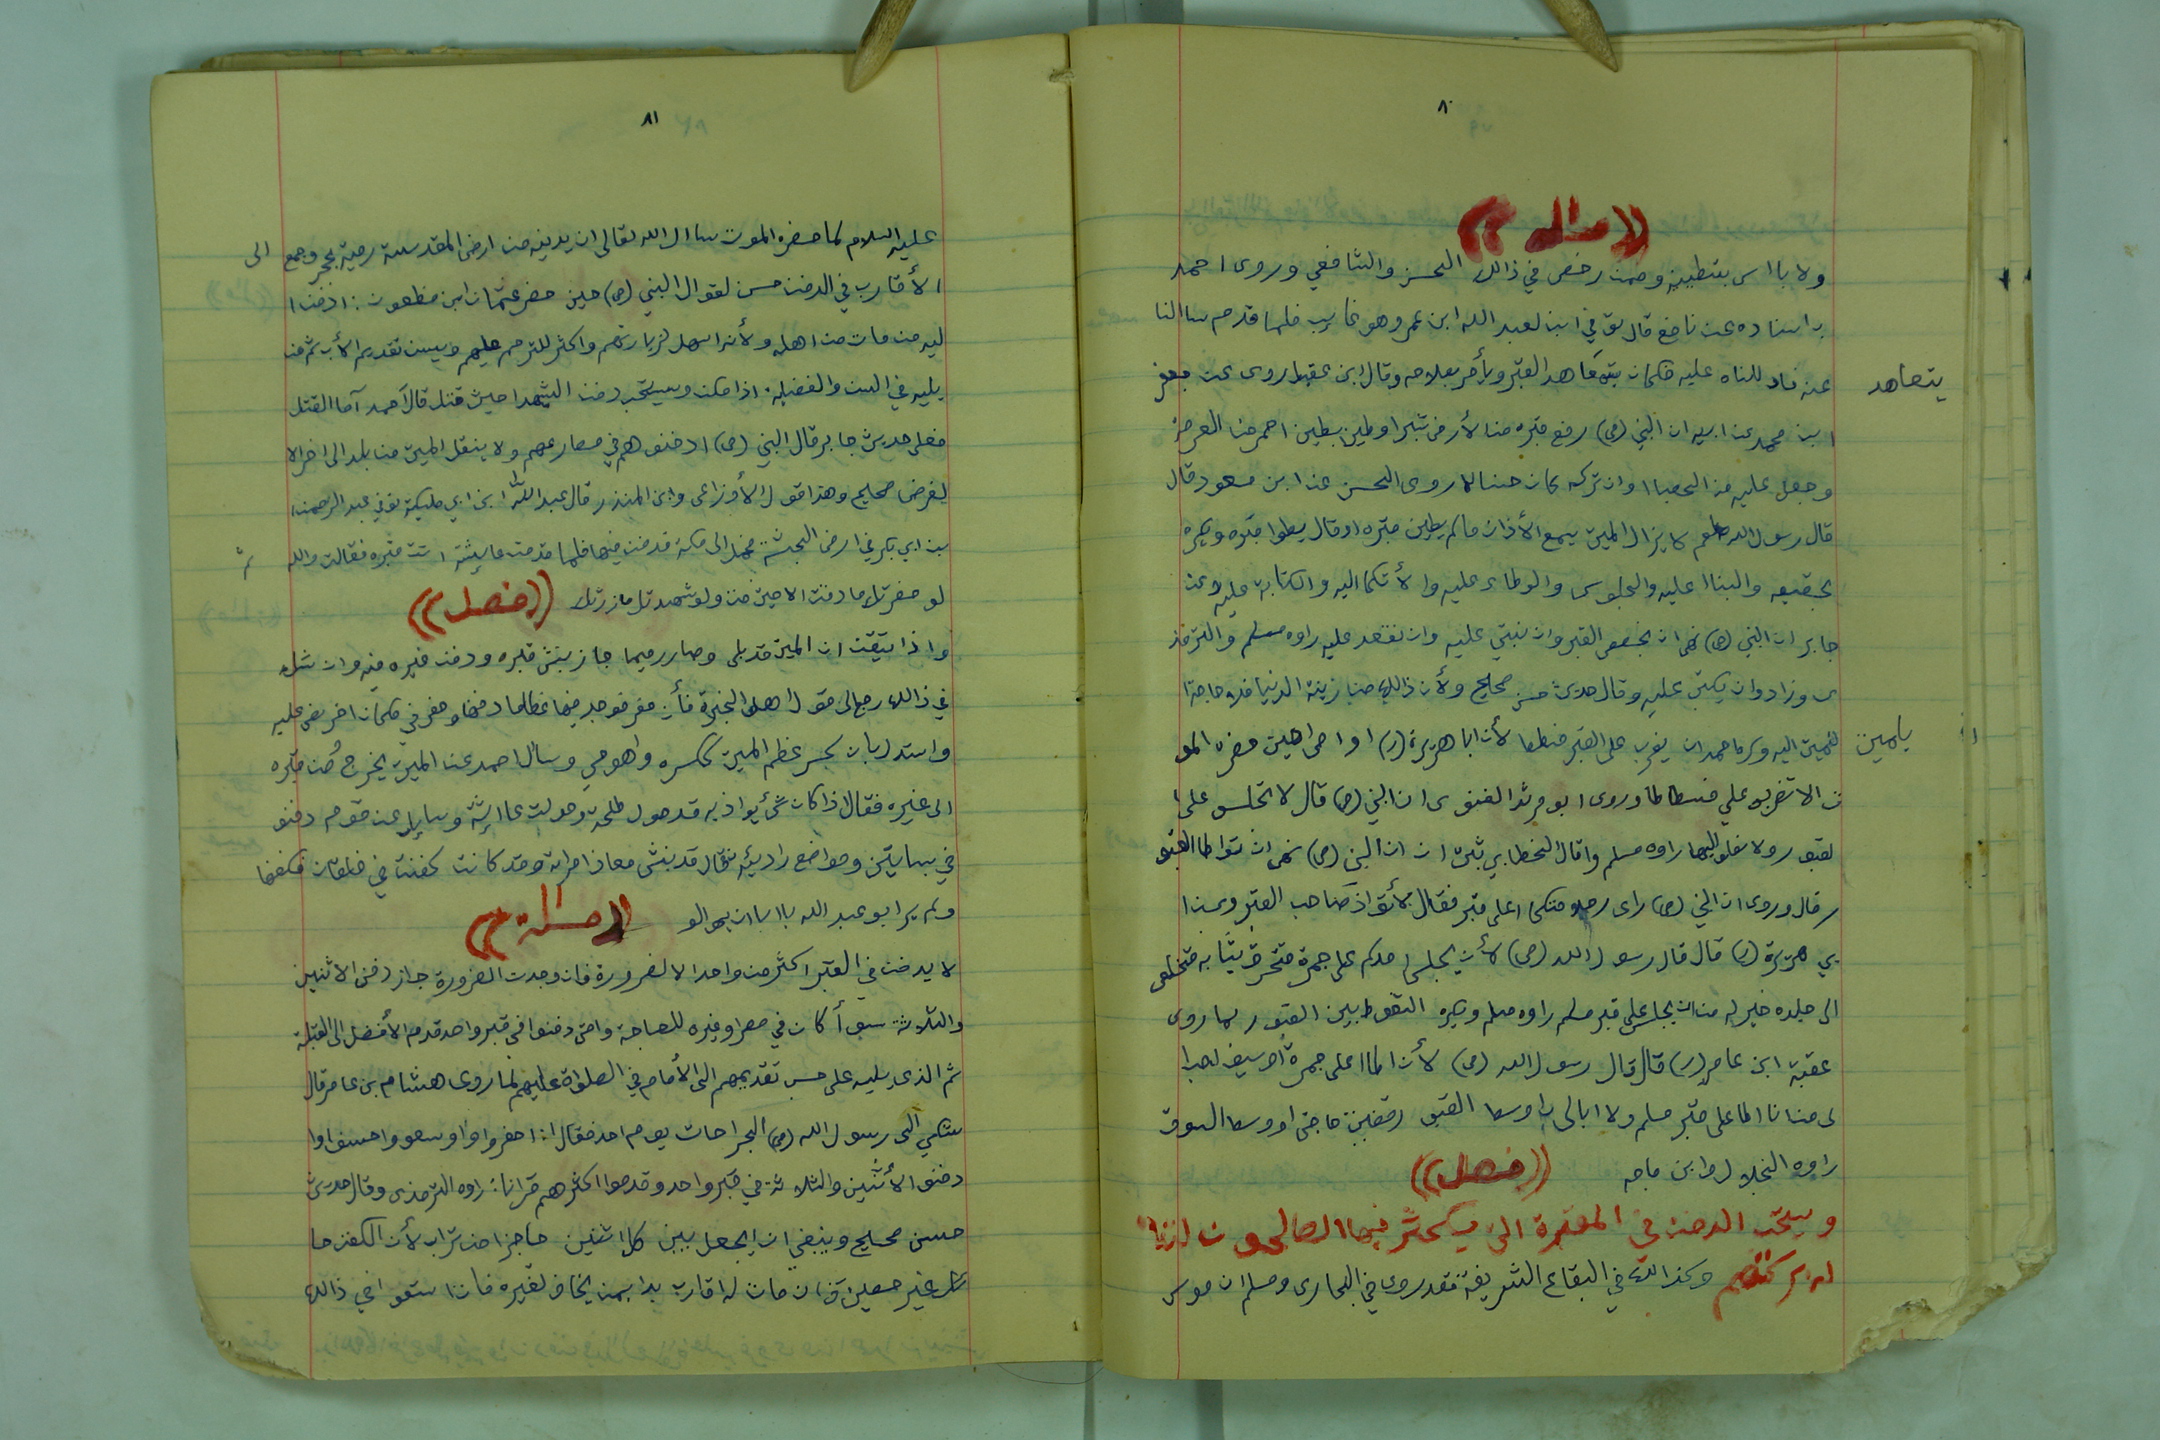 ٨٠
((مسالة))
ولا باس بتطيين وممن رخص في ذالك الحسن والشافعي وروى احمد
باسناده عن نافع قال توفي ابن لعبد الله ابن عمر وهو غايب فلما قدم سالنا
عنه للناه عليه فكان يتعاهد القبر ويأمر بعلامه وقال ابن عقيل روى عن جعفر
يتعاهد
ابن محمد عن ابيه ان النبي (ص) رفع قبره من الأرض شبرا وطين بطين احمر من العرصة
وجعل عليه من الحصباا وان تركه كان حسنا لما روى الحسن عن ابن مسعود قال
قال رسول الله صلعم لا يزال الميت يسمع الأذان ما لم يطين قبره او قال يطوا قبره ويكره
تجصيصه والبناا عليه والجلوس والوطاء عليه والأتكا اليه والكتابة عليه وعن
جابر ان النبي (ص) نهى ان يجصص القبر وان نبني عليه وان نقعد عليه راوه مسلم والترمذ
ى وزاد وان يكتب عليه وقال حديث حسن صحيح ولأن ذالك من زينة الدنيا فلا حاجة
للميت اليه وكره احمد ان يضرب على القبر فسطاطا لأن ابا هريرة (ر) اوصى حين حضره المو
ياميت
ت الا تضربو علي فسطاطا وروى ابو مرثد الغنوى ان النبي (ص) قال لا تجلسو على ا
لقبور ولا تصلو اليها راوه مسلم وقال الخطابي ثبت ان النبي (ص) نهى ان توطا القبو
ر قال وروى ان النبي (ص) راى رجلا متكيا على قبر فقال لا تؤذ صاحب القبر وعن ا
بي هريرة (ر) قال قال رسول الله (ص) لأن يجلس احدكم على جمرة فتحرق ثيابه فتخلص
الى جلده خير له من ان يجلس على قبر مسلم راوه مسلم ويكره التغوط بين القبور لما روى
عقبة ابن عامر (ر) قال قال رسول الله (ص) لأن اطا على جمرة او سيف احب ا
لى من ان اطا على قبر مسلم ولا ابالى اوسط القبور قضيت حاجتى او وسط السوق
راوه الخلال وابن ماجه ((فصل))
ويستحب الدفن في المقبرة التي يكثر فيها الصالحون لتناله
بركتهم وكذالك في البقاع الشريفة فقد روى في البخارى ومسلم ان موسى
٨١
عليه السلام لما حضره الموت سال الله تعالى ان يدنيه من ارض المقدسة رمية بحجر وجمع
الى
الأقارب في الدفن حسن لقول النبي (ص) حين حضر عثمان ابن مظعون: ادفن ا
ليه من مات من اهله ولأنه اسهل لزيارتهم واكثر للترحم عليهم ويسن تقديم الأب ثم من
يليه في السن والفضيلة اذا مكن ويستحب دفن الشهدا حيث قتل قال احمد اما القتل
فعلى حديث جابر قال النبي (ص) ادفنو هم في مصارعهم ولا ينقل الميت من بلد الى اخر الا
لغرض صحيح وهذا قول الأوزاعى وابن المنذر قال عبد الله ابن ابي مليكة توفي عبد الرحمن ا
بن ابي بكر في ارض الحبشة فحمل الى مكة فدفن فيها فلما قدمت عايشة اتت قبره فقالت والله
ثم
لو حضرتك ما دفنت الا حيث مت ولو شهدتك ما زرتك ((فصل))
واذا تيقن ان الميت قد بلى وصار رميما جاز نبش قبره ودفن غيره فيه وان شك
في ذالك رجع الى قول اهل الخبرة فأن حفر فوجد فيها عظاما دفنها وحفر في مكان اخر نص عليه
واستدل بان كسر عظم الميت ككسره وهو حي وسال احمد عن الميت يخرج من قبره
الى غيره فقال اذا كان شيء يواذيه قد حول طلحة وحولت عاايشة وسايل عن قوم دفنو
في بساتين ومواضع راديئه فقال قد نبش معاذ امراته وقد كانت كفنت في خلقان فكفنها
ولم ير ابو عبد الله باسا ان يحولو ((مسالة))
لا يدفن في القبر اكثر من واحد الا لضرورة فان وجدت الضرورة جاز دفن الاثنين
والثلاثة سوأ كان في مصر او غيره للحاجة ومتى دفنوا في قبر واحد قدم الأفضل الى القبلة
ثم الذى يليه على حسب تقديمهم الى الأمام في الصلواة عليهم لما روى هشام بن عامر قال
شكي الى رسول الله (ص) الجراحات يوم احد فقال: احفروا واوسعو واحسنوا وا
دفنو الأثنين والثلاثة في قبر واحد وقدموا اكثرهم قرانا: راوه الترمذى وقال حديث
حسن صحيح وينبغي ان يجعل بين كل اثنين حاجزا من تراب لأن الكفن حا
يل غير حصين فان مات له اقارب بدا بمن يخاف تغيره فان استووا في ذالك